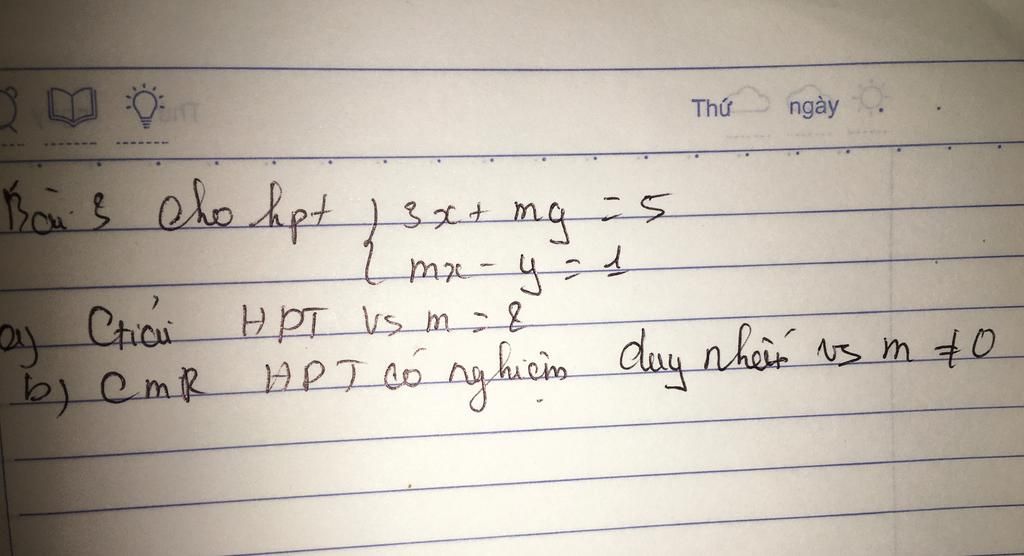 Thứ ngày
Bài 3 Cho hpt { 3x + my = 5
mx - y = 1
a) Giải HPT vs m = 2
b) CmR HPT có nghiệm duy nhất vs m ≠ 0